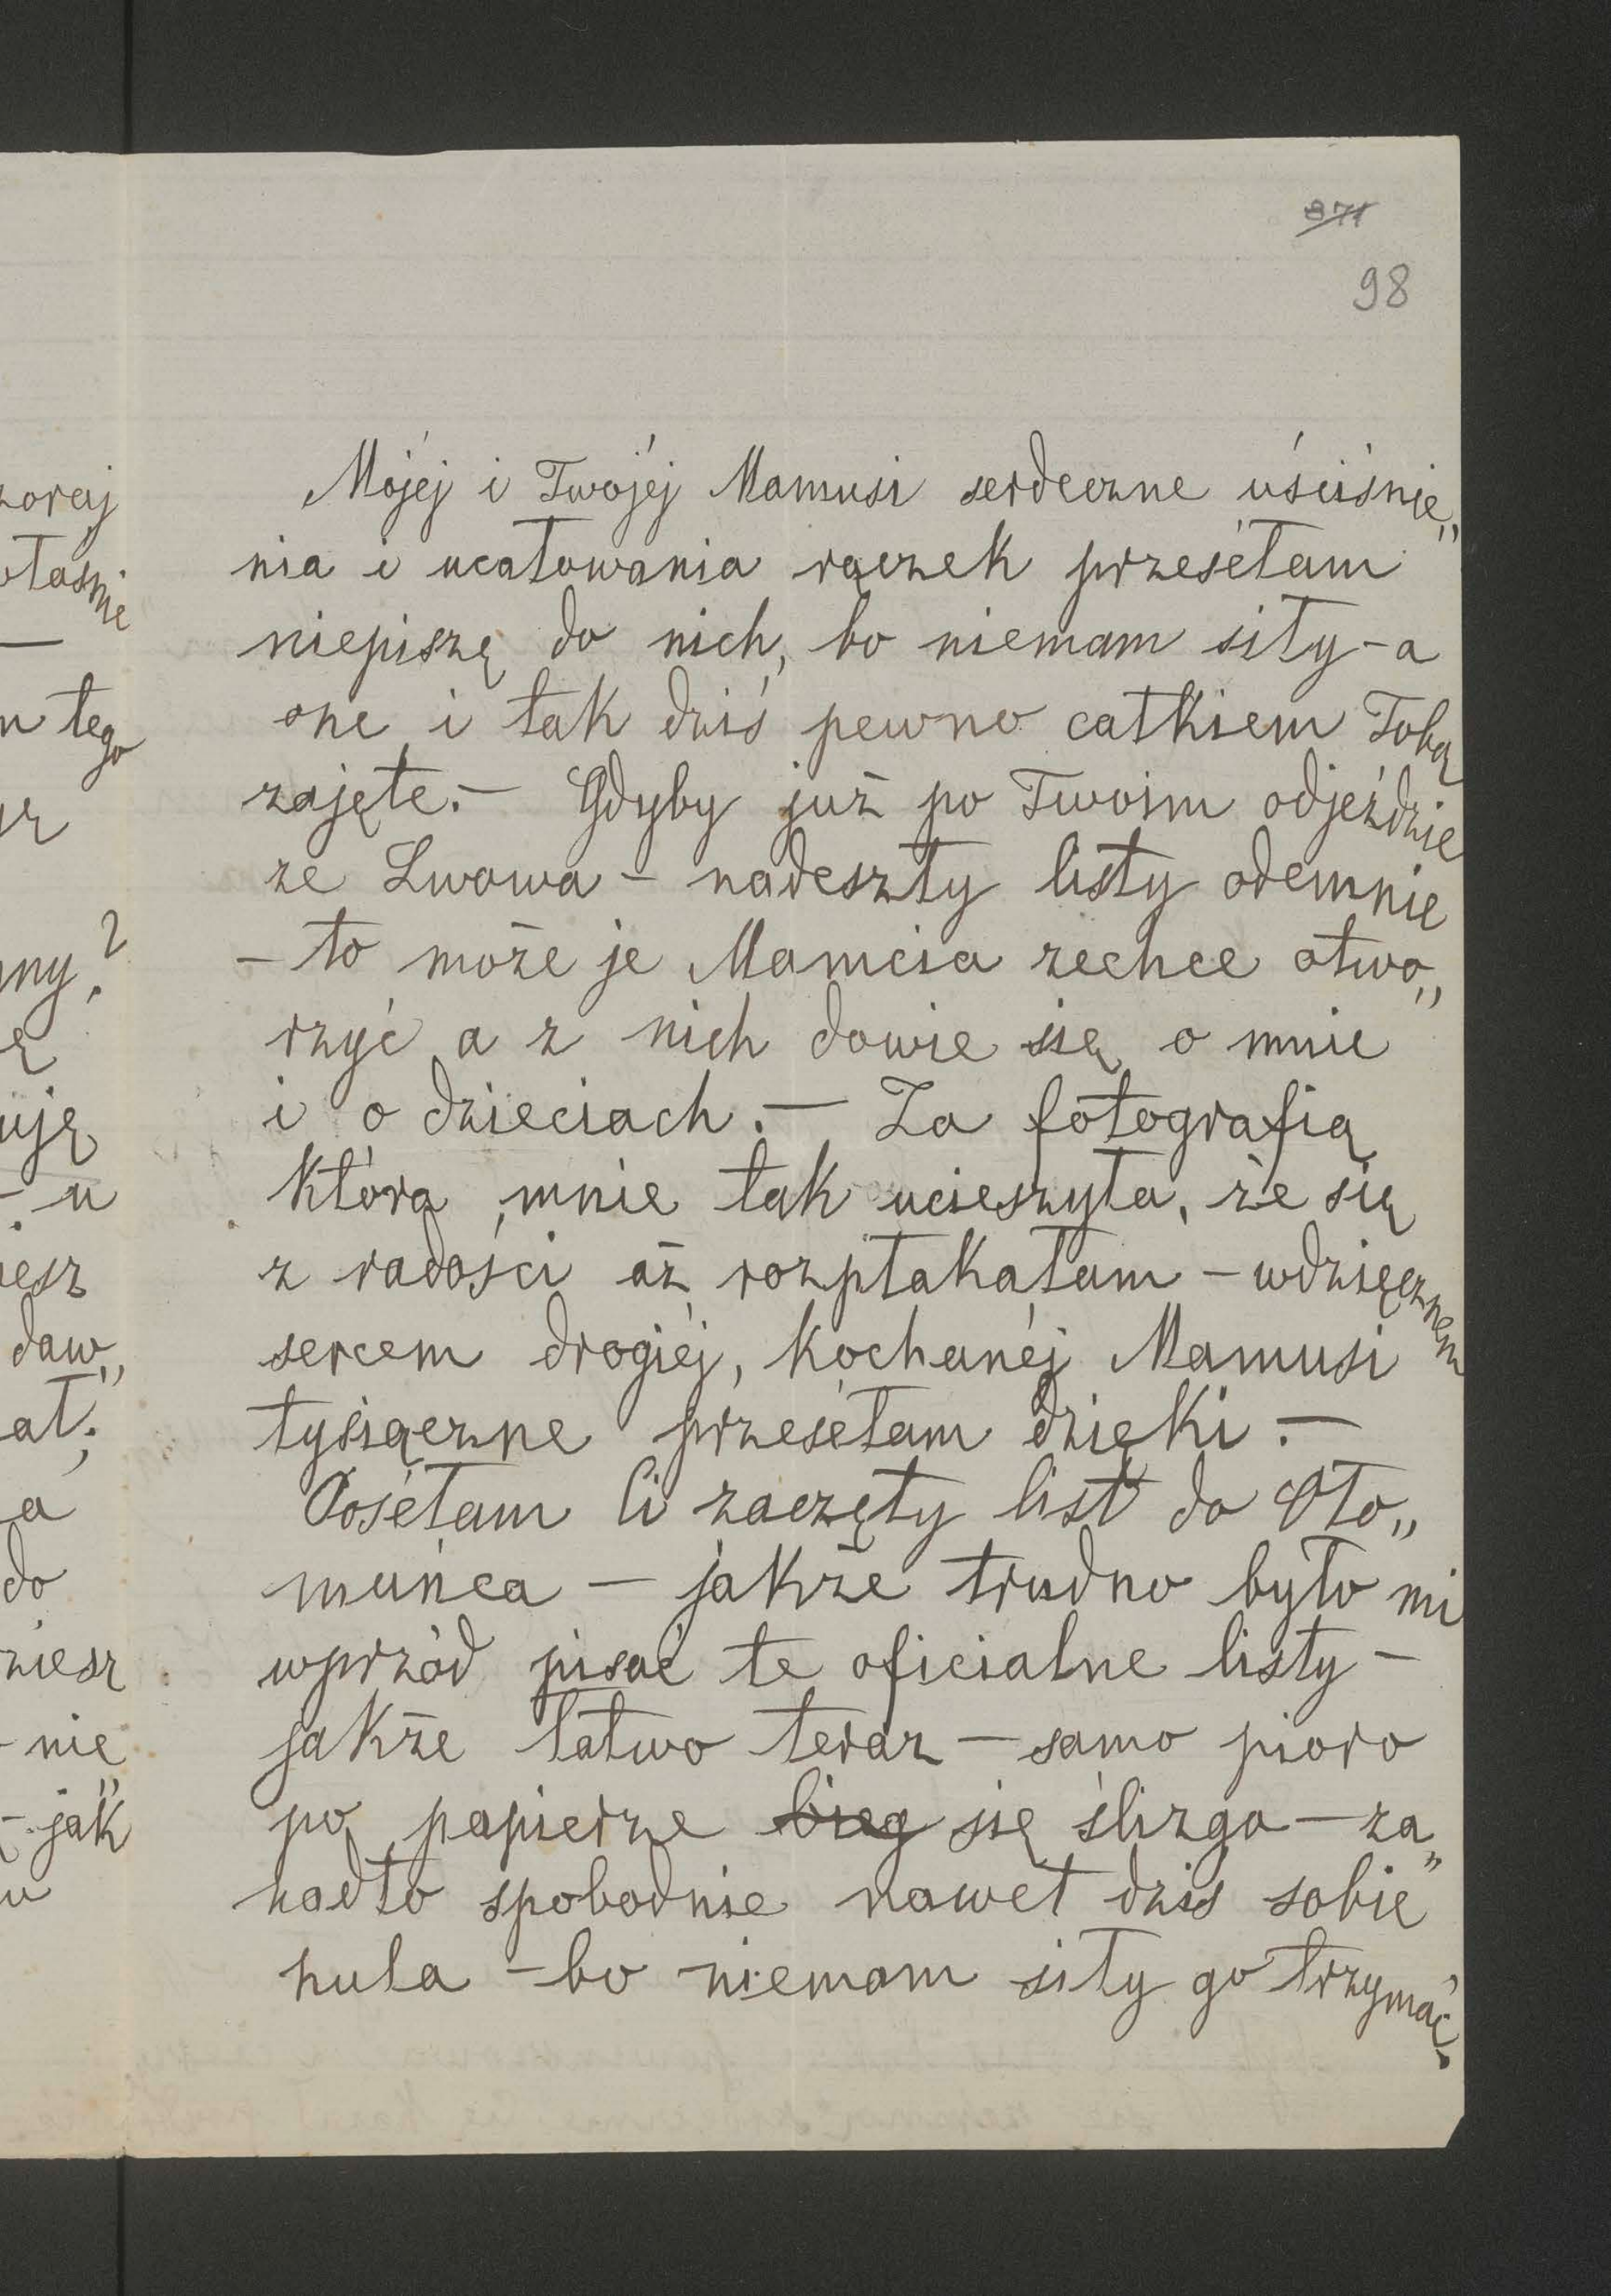 871
98
Mójéj i Twojéj Mamusi serdeczne uściśnie„
nia i ucałowania rączek przesełam
niepiszę do nich, bo niemam siły – a
one i tak dziś pewno całkiem Tobą
zajęte. – Gdyby już po Twoim odjeździe
ze Lwowa – nadeszły listy odemnie
– to może je Mamcia zechce otwo„
rzyć a z nich dowie się o mnie
i o dzieciach. – Za fotografią
która mnie tak ucieszyła, że się
z radości aż rozpłakałam – wdzięcznem
sercem drogiéj, kochanéj Mamusi
tysiączne przesełam dzięki. –
Posełam Ci zaczęty list do Oło„
muńca – jakże trudno było mi
wprzód pisać te oficialne listy –
jakże łatwo teraz – samo pioro
po papierze bieg się ślizga – za„
nadto spobodnie nawet dziś sobie
hula – bo niemam siły go trzymać.
zoraj
łaśnie
–
n tego
ny?
ę
ują
– u
iesz
daw„
ał;
a
do
ziesz
– nie
– jak„